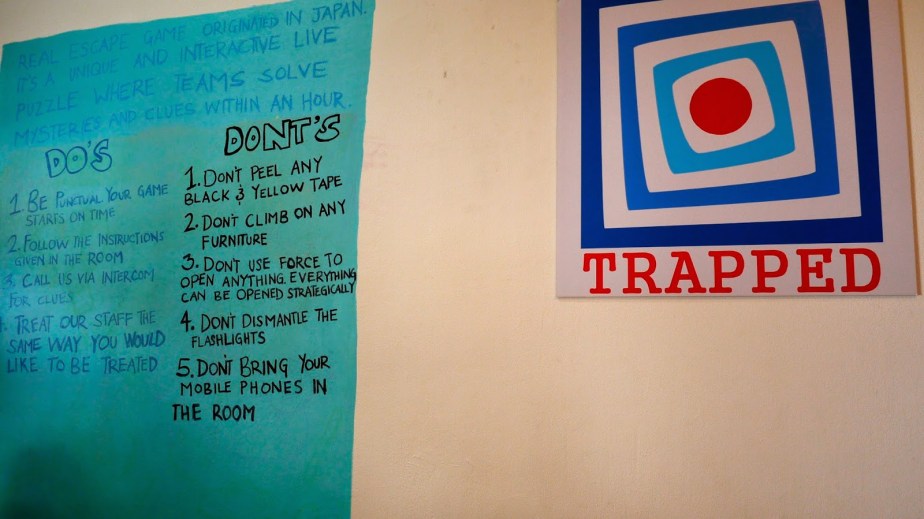 REAL ESCAPE GAME ORIGINATED IN JAPAN.
IT'S A UNIQUE AND INTERACTIVE LIVE
PUZZLE WHERE TEAMS SOLVE
MYSTERIES AND CLUES WITHIN AN HOUR.
DO'S
1. BE PUNCTUAL YOUR GAME
STARTS ON TIME
2. FOLLOW THE INSTRUCTIONS
GIVEN IN THE ROOM
3. CALL US VIA INTERCOM
FOR CLUES
4. TREAT OUR STAFF THE
SAME WAY YOU WOULD
LIKE TO BE TREATED
DONT'S
1. DON'T PEEL ANY
BLACK & YELLOW TAPE
2. DON'T CLIMB ON ANY
FURNITURE
3. DON'T USE FORCE TO
OPEN ANYTHING. EVERYTHING
CAN BE OPENED STRATEGICALLY
4. DON'T DISMANTLE THE
FLASHLIGHTS
5. DON'T BRING YOUR
MOBILE PHONES IN
THE ROOM
TRAPPED